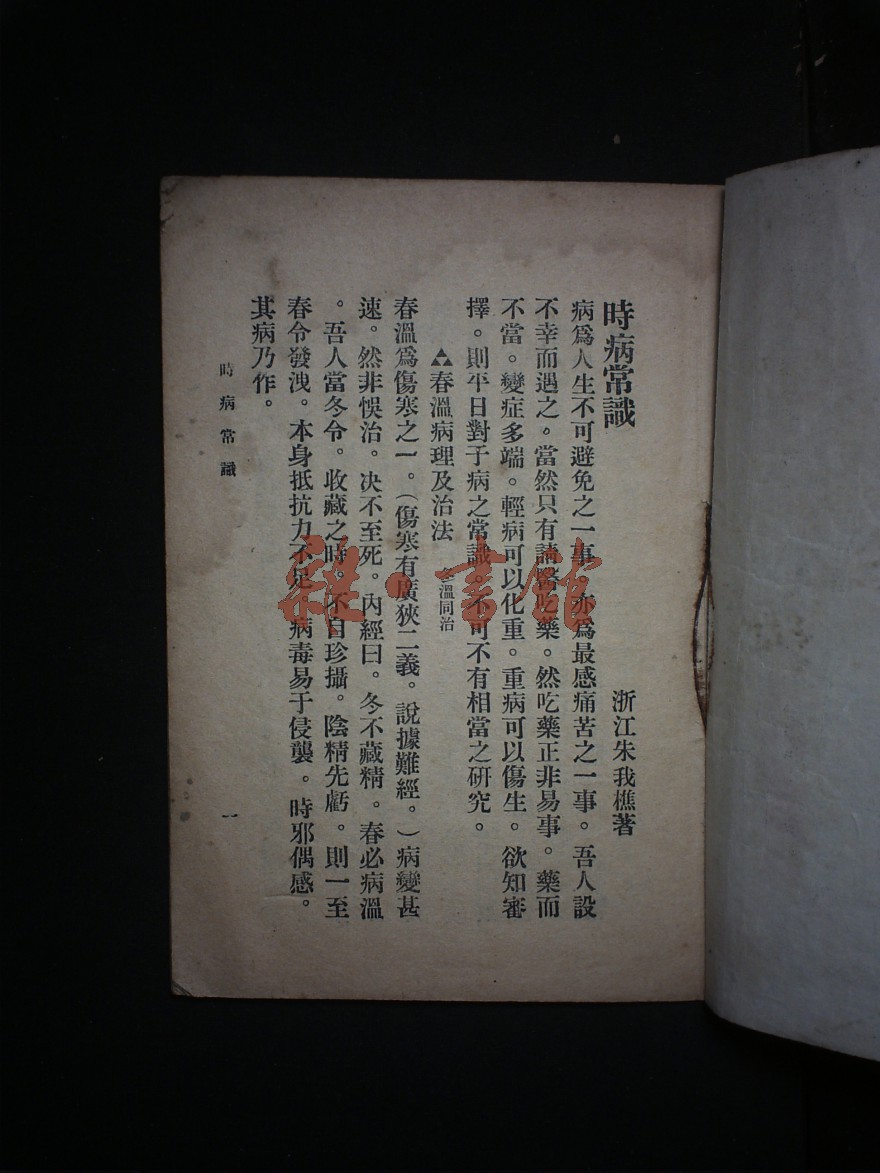 時病常識
浙江朱我樵著
病爲人生不可避免之一事。亦爲最感痛苦之一事。吾人設
不幸而遇之。當然只有請醫吃藥。然吃藥正非易事。藥而
不當。變症多端。輕病可以化重。重病可以傷生。欲知審
擇。則平日對于病之常識。不可不有相當之研究。
春溫病理及治法 冬溫同治
春溫爲傷寒之一。(傷寒有廣狹二義。說據難經。)病變甚
速。然非悞治。决不至死。內經曰。冬不藏精。春必病溫
。吾人當冬令。收藏之時。不自珍攝。陰精先虧。則一至
春令發洩。本身抵抗力不足。病毒易于侵襲。時邪偶感。
其病乃作。
時病常識
一
雜·書館